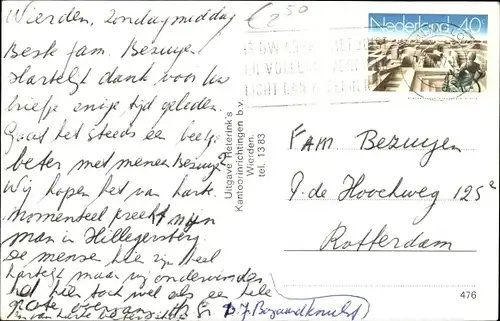 Wierden, Zondagmiddag
€ 2 50
Beste fam. Bezuyen
Hartelijk dank voor Uw
briefje enige tijd geleden.
Gaat het steeds een beetje
beter met meneer Bezuyen?
Wij hopen het van harte.
Momenteel preekt mijn
man in Hillegersberg
De mensen hier zijn heel
hartelijk maar wij ondervinden
het hier toch wel als een hele
grote
Nederland 40c
Uitgave Reterink's
Kantoorinrichtingen b.v.
Wierden
tel. 1383
Fam Bezuyen
P. de Hoochweg 125c
Rotterdam
476